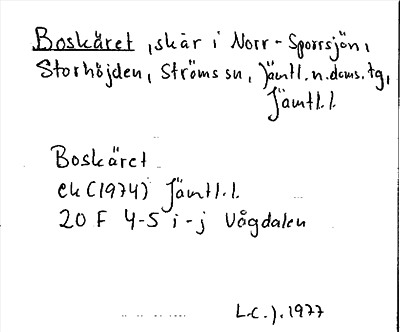 Boskäret, skär i Norr-Sporrsjön,
Storhöjden, Ströms sn, Jämtl. n. doms. tg,
Jämtl. l.
Boskäret
ek (1974) Jämtl. l.
20 F 4-5 i-j Vågdalen
L-C. J. 1977